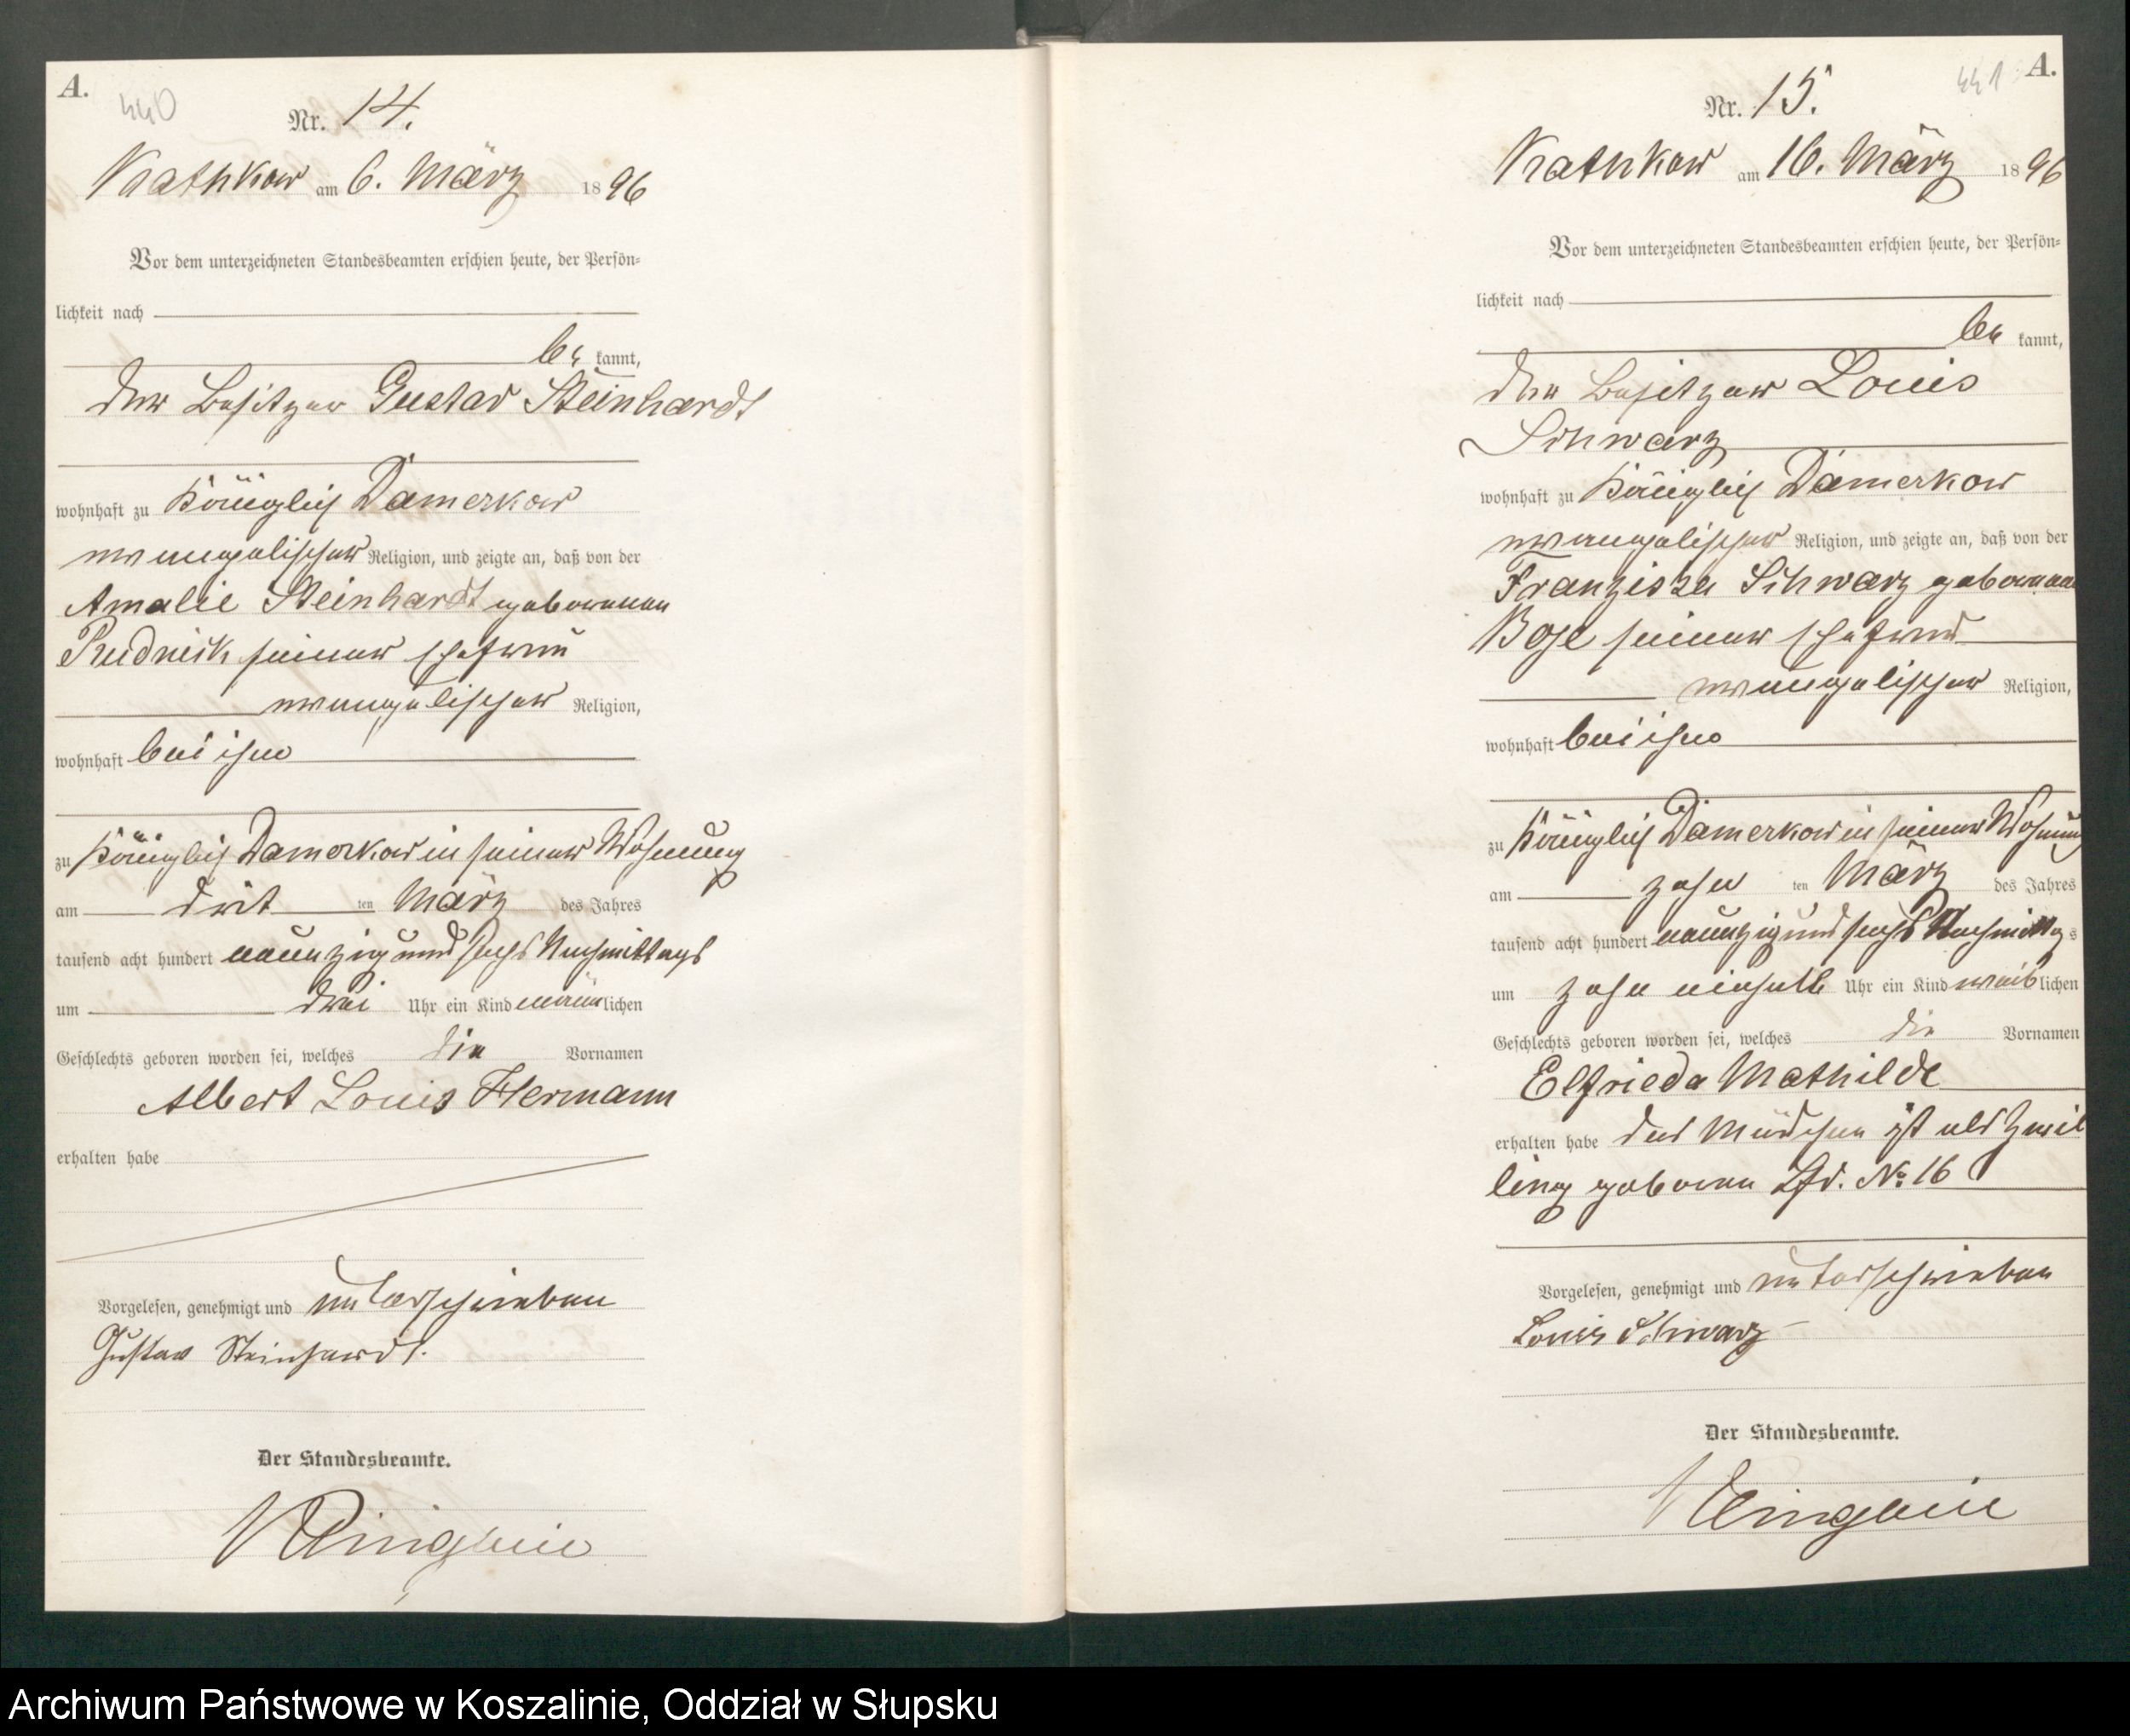 A.
440
Nr. 14.
Krathkow am 6. März 1896
Vor dem unterzeichneten Standesbeamten erschien heute, der Persön-
lichkeit nach
be kannt,
der Besitzer Gustav Steinhardt
wohnhaft zu Königlich Damerkow
evangelischer Religion, und zeigte an, daß von der
Amalie Steinhardt geborenen
Rudnick seiner Ehefrau
evangelischer Religion,
wohnhaft bei ihm
zu Königlich Damerkow in seiner Wohnung
am dritten März des Jahres
tausend acht hundert neunzig und sechs Nachmittags
um drei Uhr ein Kind männlichen
Geschlechts geboren worden sei, welches die Vornamen
Albert Louis Hermann
erhalten habe
Vorgelesen, genehmigt und unterschrieben
Gustav Steinhardt.
Der Standesbeamte.
A.
441
Nr. 15.
Krathkow am 16. März 1896
Vor dem unterzeichneten Standesbeamten erschien heute, der Persön-
lichkeit nach
be kannt,
der Besitzer Louis
Schwarz
wohnhaft zu Königlich Damerkow
evangelischer Religion, und zeigte an, daß von der
Franziska Schwarz geborenen
Boje seiner Ehefrau
evangelischer Religion,
wohnhaft bei ihm
zu Königlich Damerkow in seiner Wohnung
am zehnten März des Jahres
tausend acht hundert neunzig und sechs Nachmittags
um zehn einhalb Uhr ein Kind weiblichen
Geschlechts geboren worden sei, welches die Vornamen
Elfrieda Mathilde
erhalten habe das Mädchen ist als Zwil
ling geboren Lfd. No 16
Vorgelesen, genehmigt und unterschrieben
Louis Schwarz
Der Standesbeamte.
Archiwum Państwowe w Koszalinie, Oddział w Słupsku